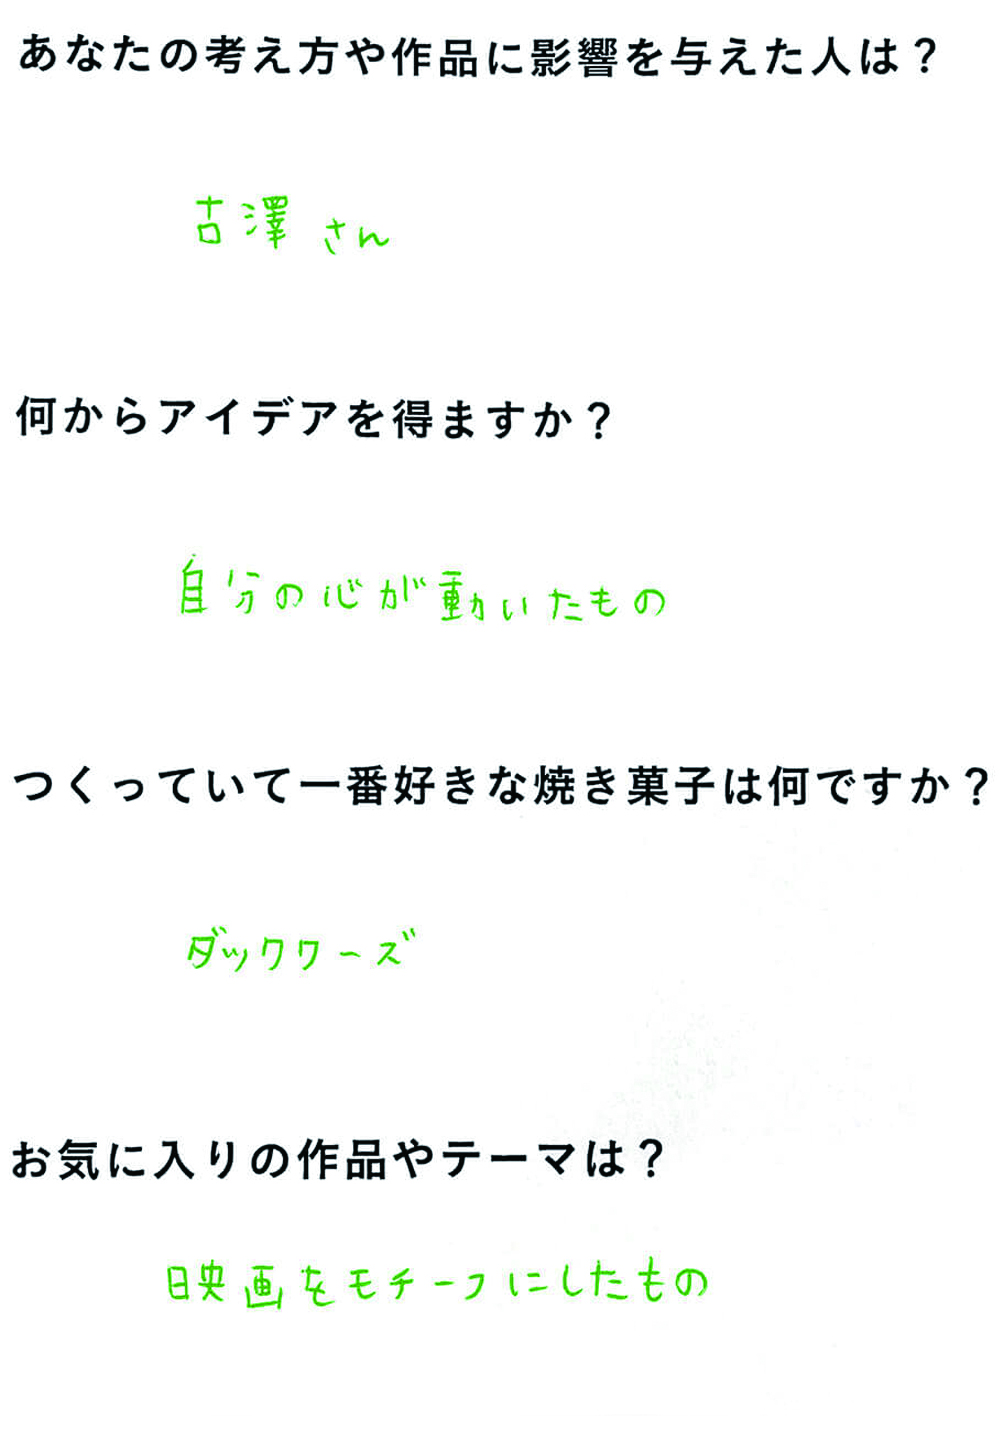 あなたの考え方や作品に影響を与えた人は？
古澤さん
何からアイデアを得ますか？
自分の心が動いたもの
つくっていて一番好きな焼き菓子は何ですか？
ダックワーズ
お気に入りの作品やテーマは？
映画をモチーフにしたもの